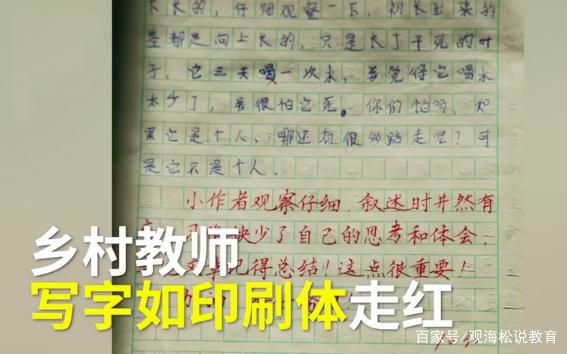 卜长的，仔细观察一下，初长出来的
都是向上长的，只是长了干死的叶
子，它三天喝一次水，我觉得它喝水
太少了，我很怕它死。你们怕吗，如
果它是个人，哪还有很多路走呢？可
是它不是个人。
小作者观察仔细，叙述时井然有
缺少了自己的思考和体会，
记得总结！这点很重要！
乡村教师
写字如印刷体走红
百家号/观海松说教育